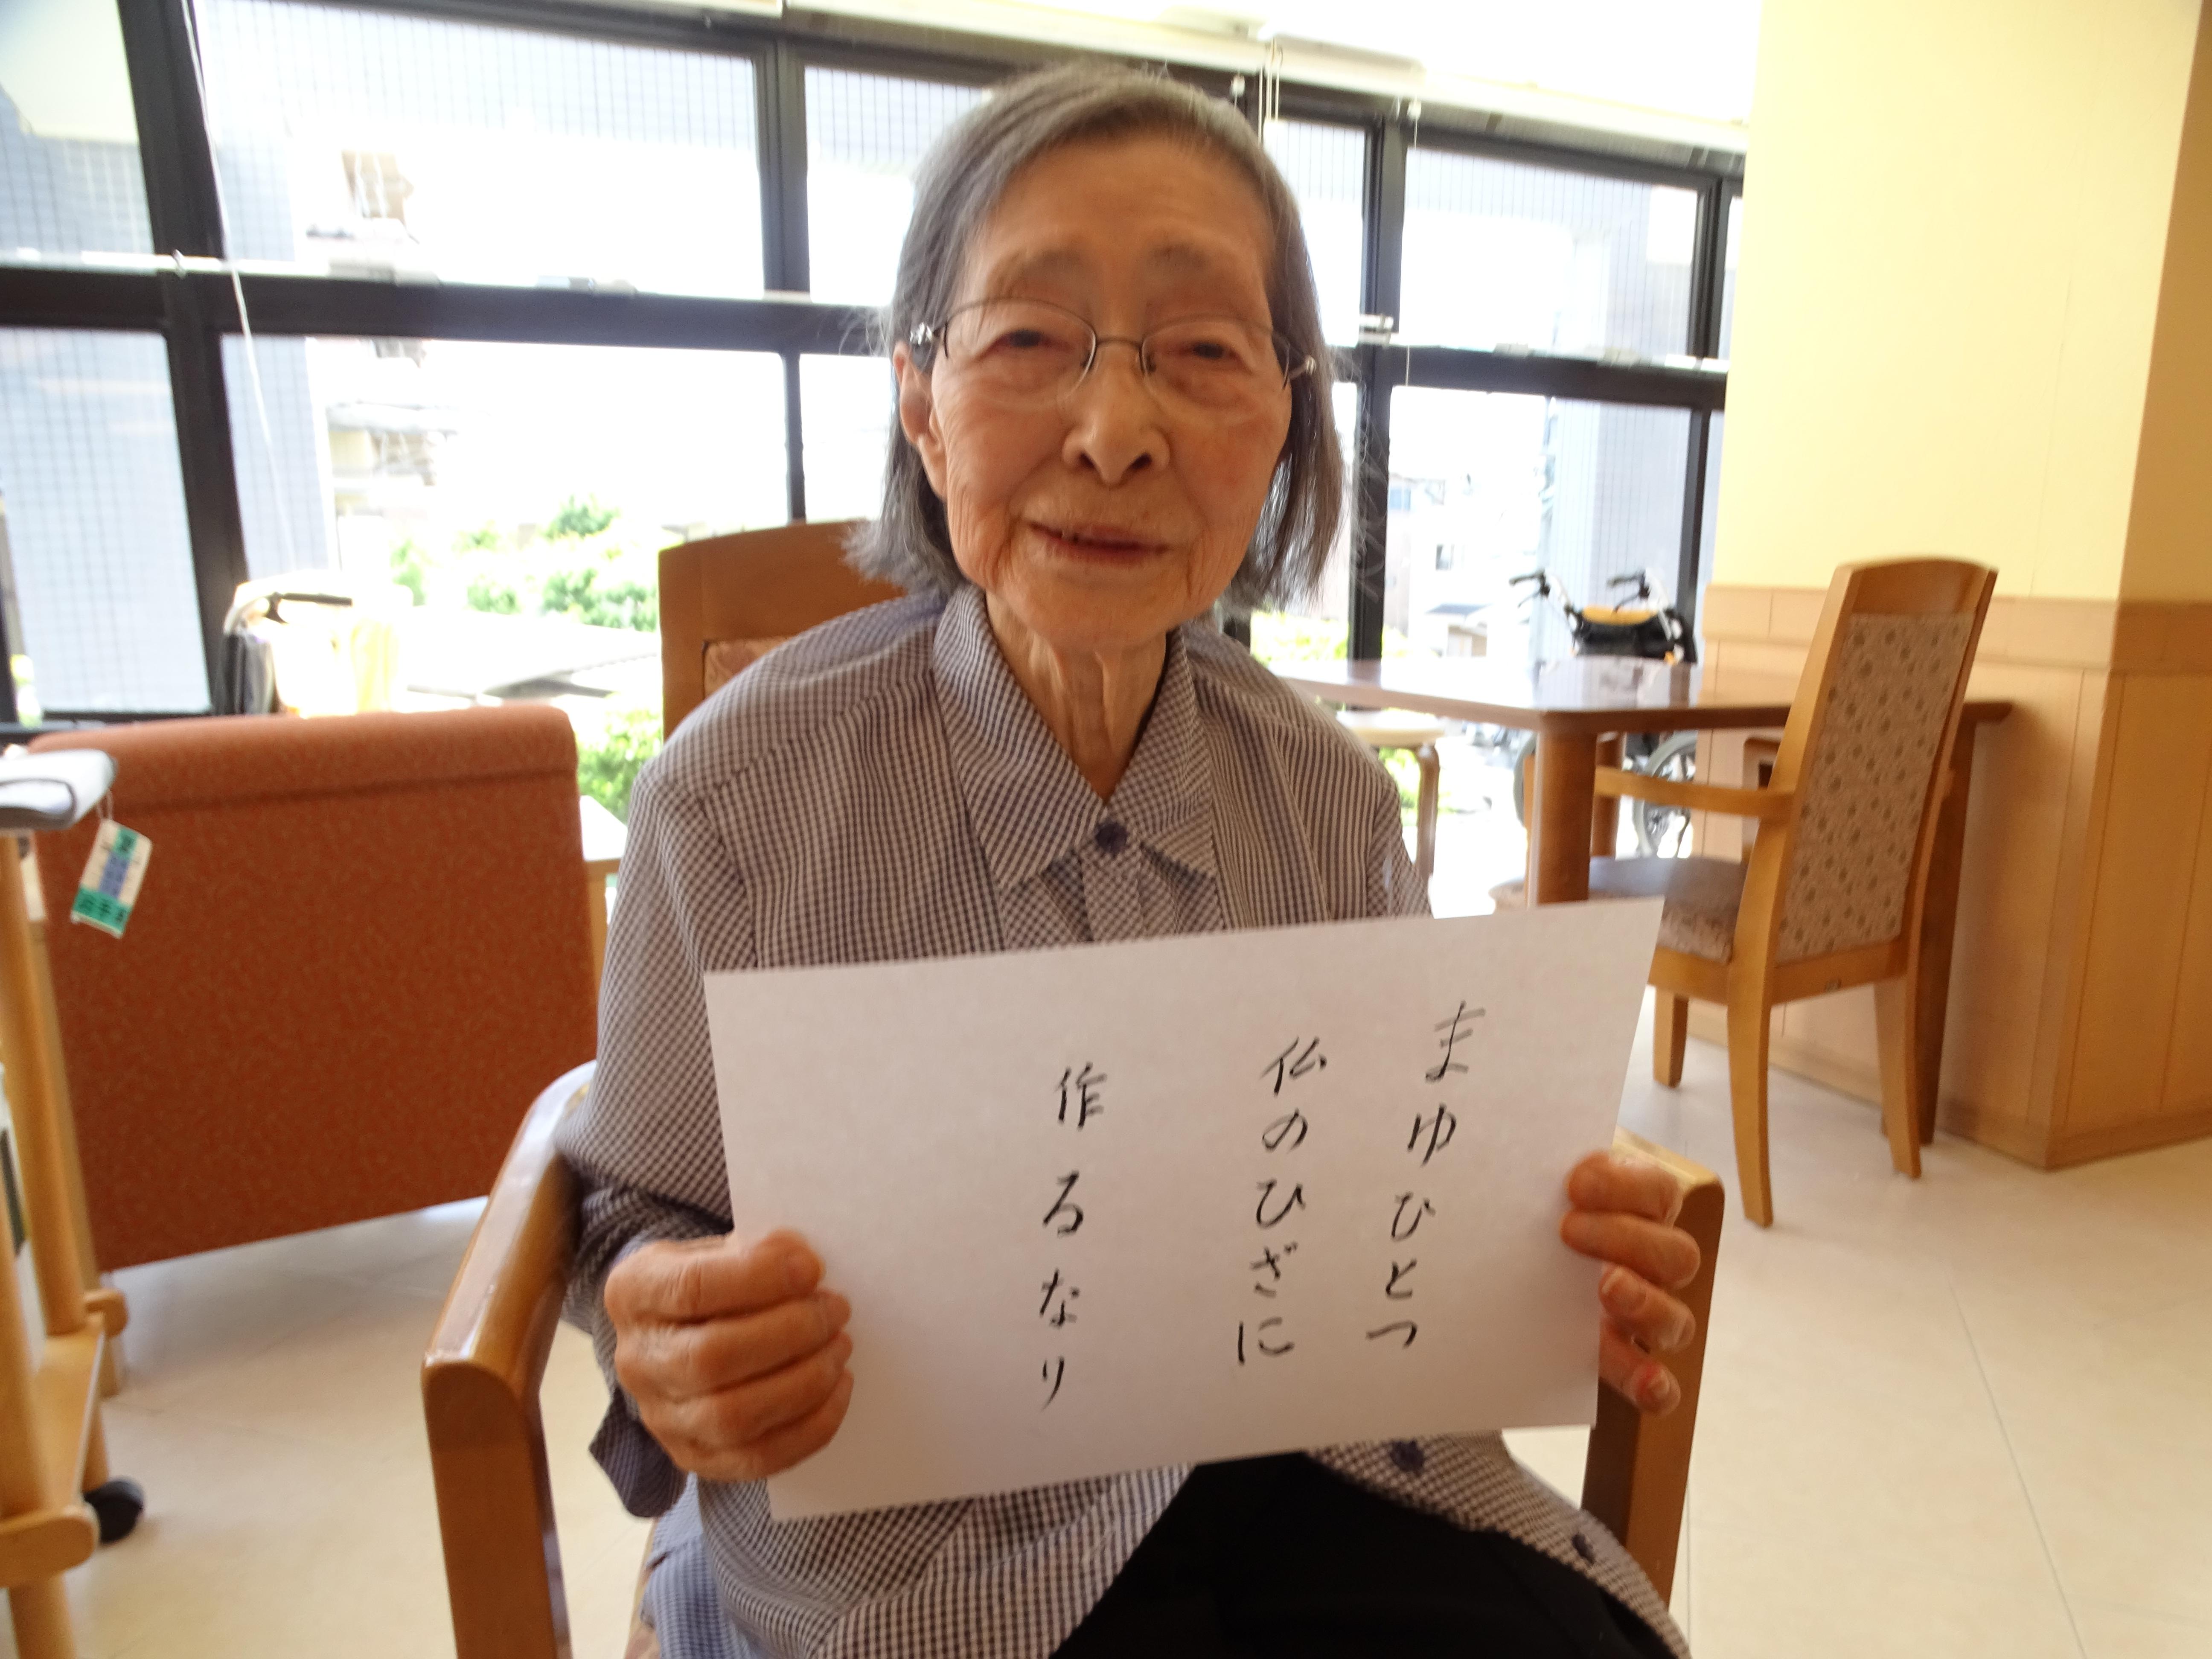 まゆひとつ
仏のひざに
作るなり